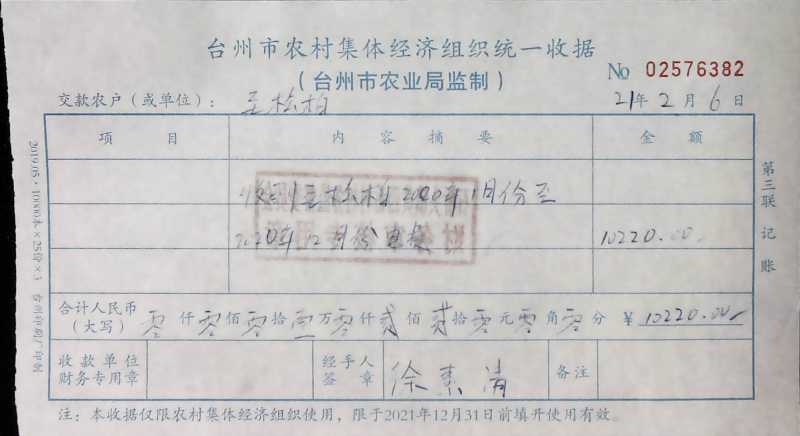 台州市农村集体经济组织统一收据
（台州市农业局监制）
No 02576382
交款农户（或单位）： 王松柏 21年 2月 6日
项目 内容摘要 金额
收到王松柏2020年1月份至
2020年12月份 10220.00
合计人民币（大写） 零仟零佰零拾壹万零仟贰佰贰拾零元零角零分 ¥ 10220.00
收款单位财务专用章 经手人签章 徐素清 备注
注：本收据仅限农村集体经济组织使用，限于2021年12月31日前填开使用有效。
第三联 记账
2019.05·10000本×25份×3 台州印刷厂印制